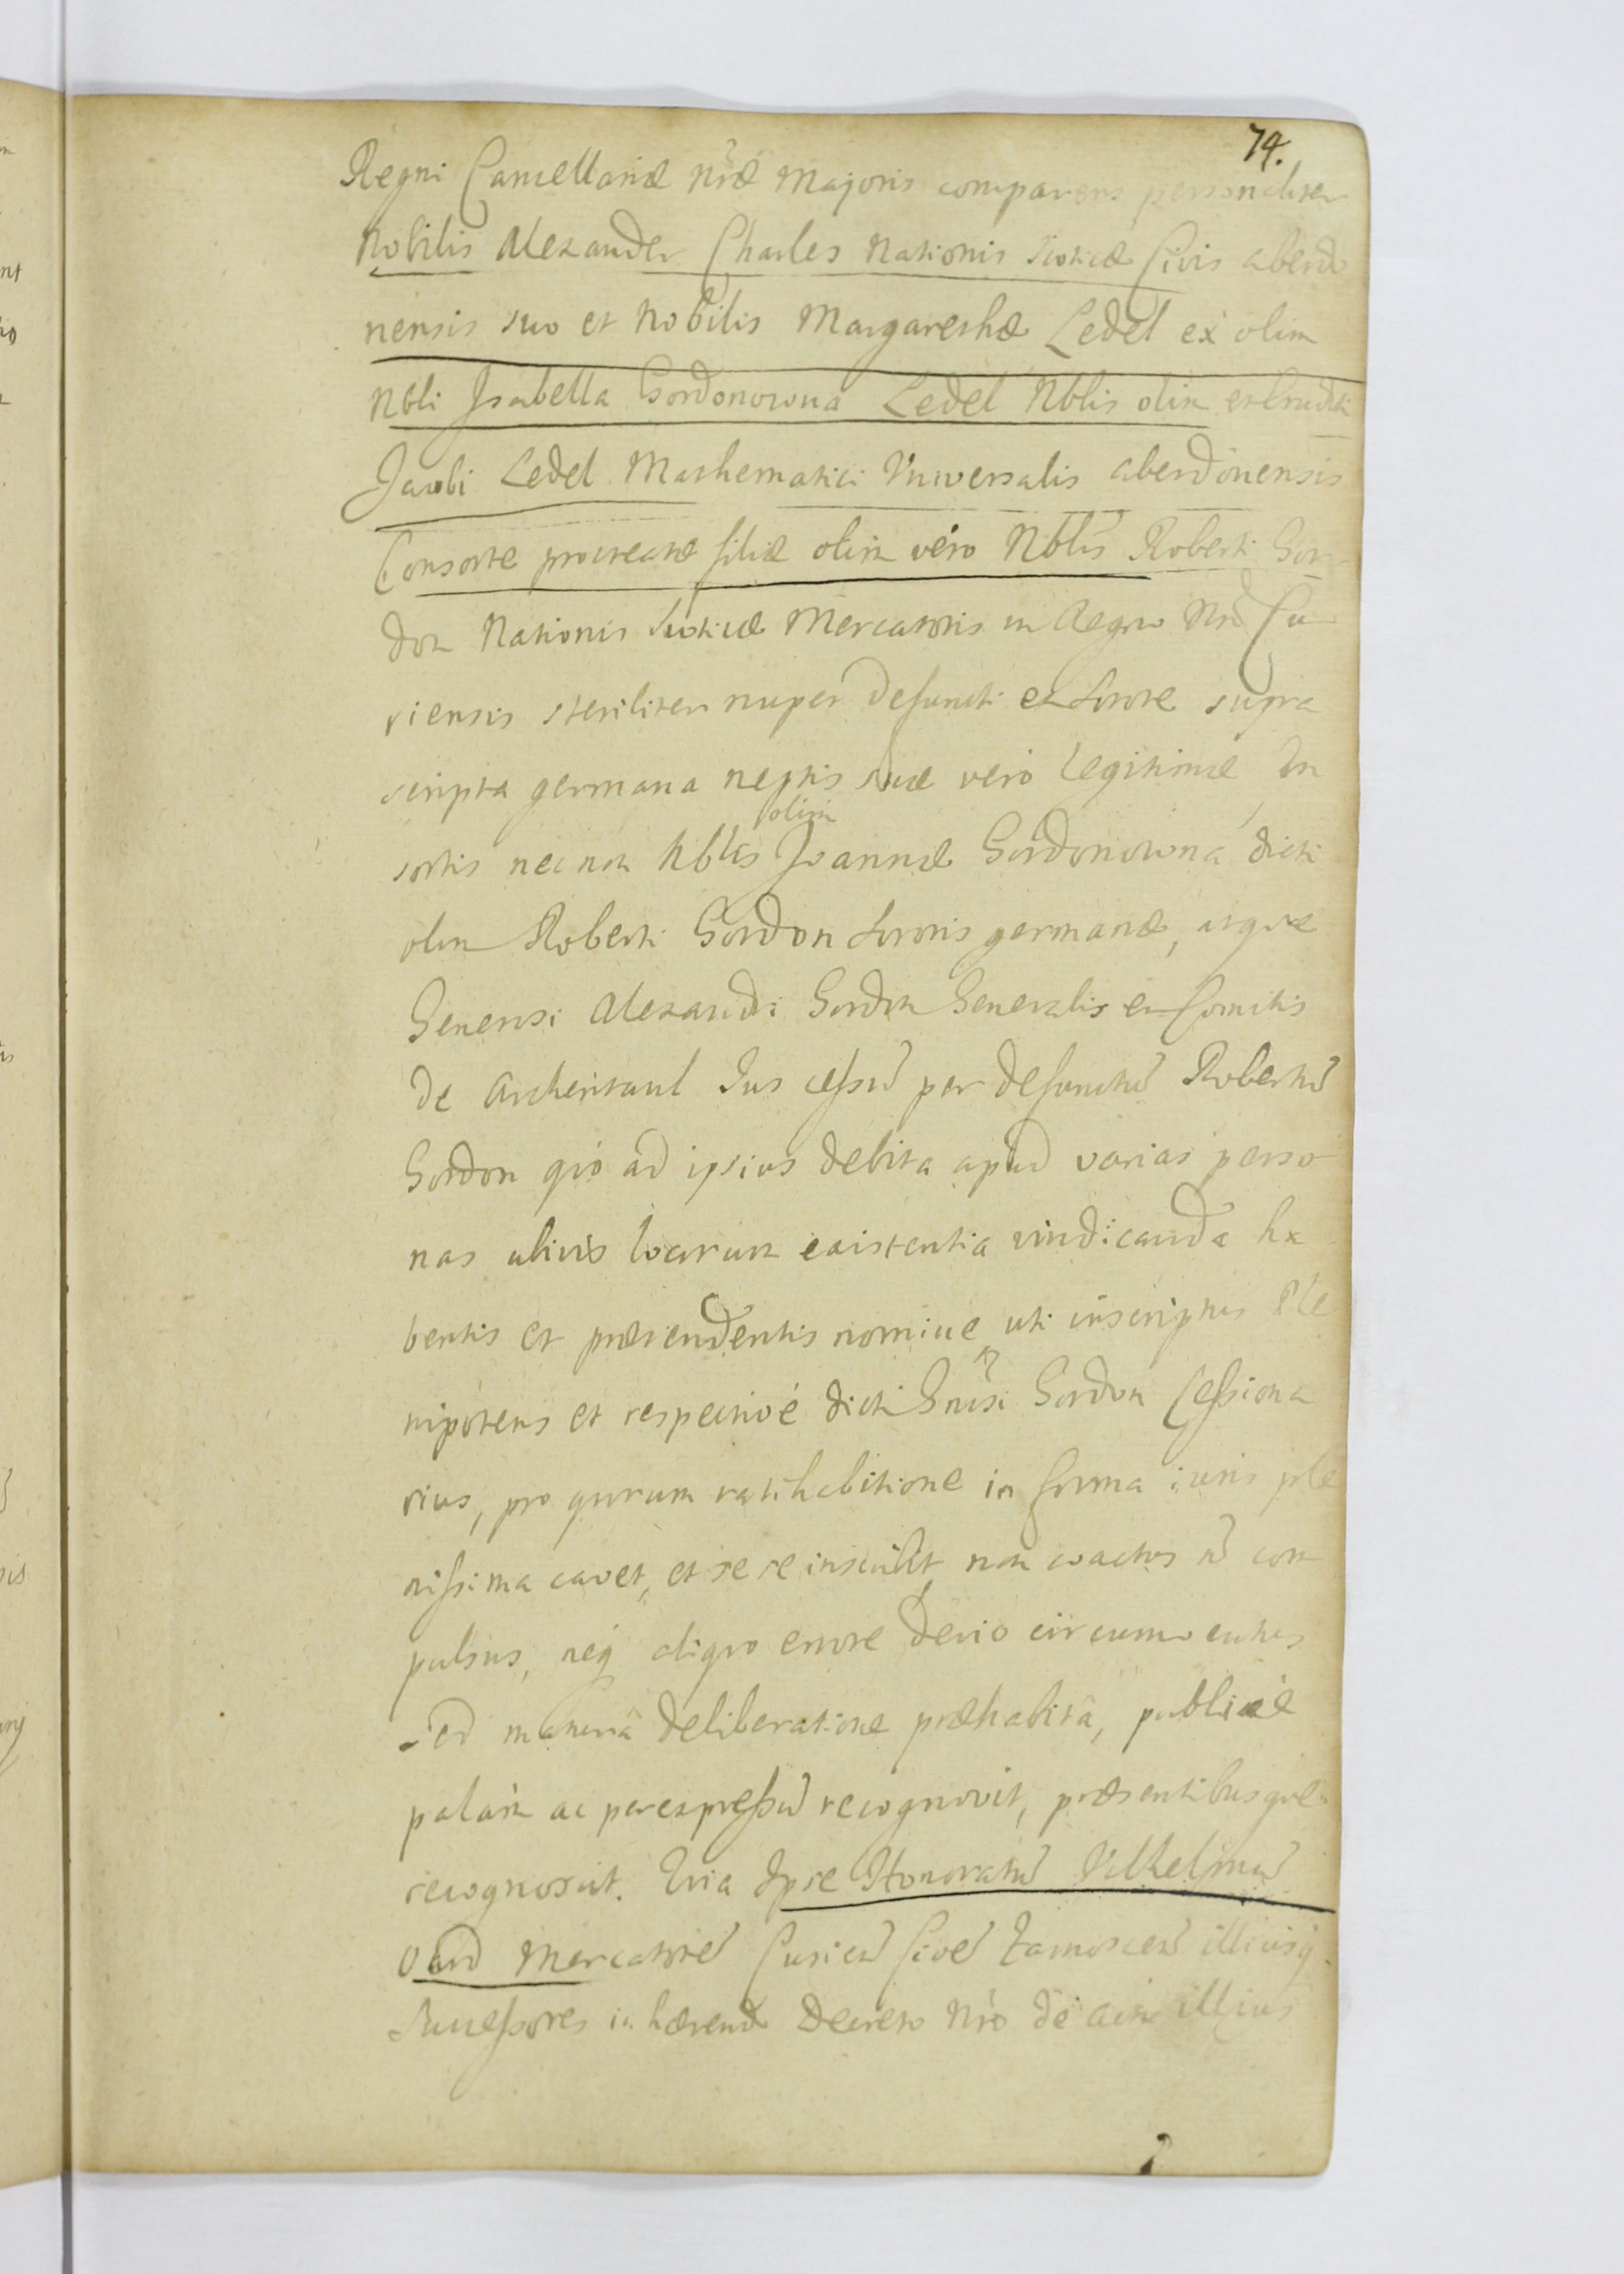 74.
Regni Cancellariæ nr̃æ Majoris comparens personaliter
Nobilis Alexander Charles Nationis Scoticæ Civis aberdo
nensis suo et Nobilis Margarethæ Ledel ex olim
Nbli Isabella Gordonowna Ledel Nblis olim et
Jacobi Ledel Mathematici Universalis aberdonensis
Consorte procreatæ filiæ olim vero Nblis Roberti Gor
don Nationis Scoticæ Mercatoris in Regno Nrõ Cu
riensis steriliter nuper defuncti ex sorore supra
scripta germana neptis suæ vero legitimæ In
sortis nec non Nblis olim Joannæ Gordonowna dicti
olim Roberti Gordon sororis germanæ, atque
Generosi Alexandri Gordon Generalis et Comitis
de Jus cessũ per defunctũ Robertũ
Gordon qrò ad ipsius debita apud varias perso
nas ubivis locorum existentia vindicanda ha
bentis et prætendentis nomine uti inscriptus Ple
nipotens et respectivè dicti Gnrsi Gordon Cessiona
rius, pro quorum ratihabitione in forma iuris ple
nissima cavet, et se se inscribit non coactus nõ com
pulsus, neq aliquo errore devio circumventus
sed maturâ deliberatione præhabitâ, publicè
palàm ac per expressũ recognovit, præsentibusque
recognoscit. Quia Ipse Honoratũ Vilhelmũ
Mercatorẽ Civẽ Zamoscen illiusq
Successores in hærend Decreto Nrò de illius